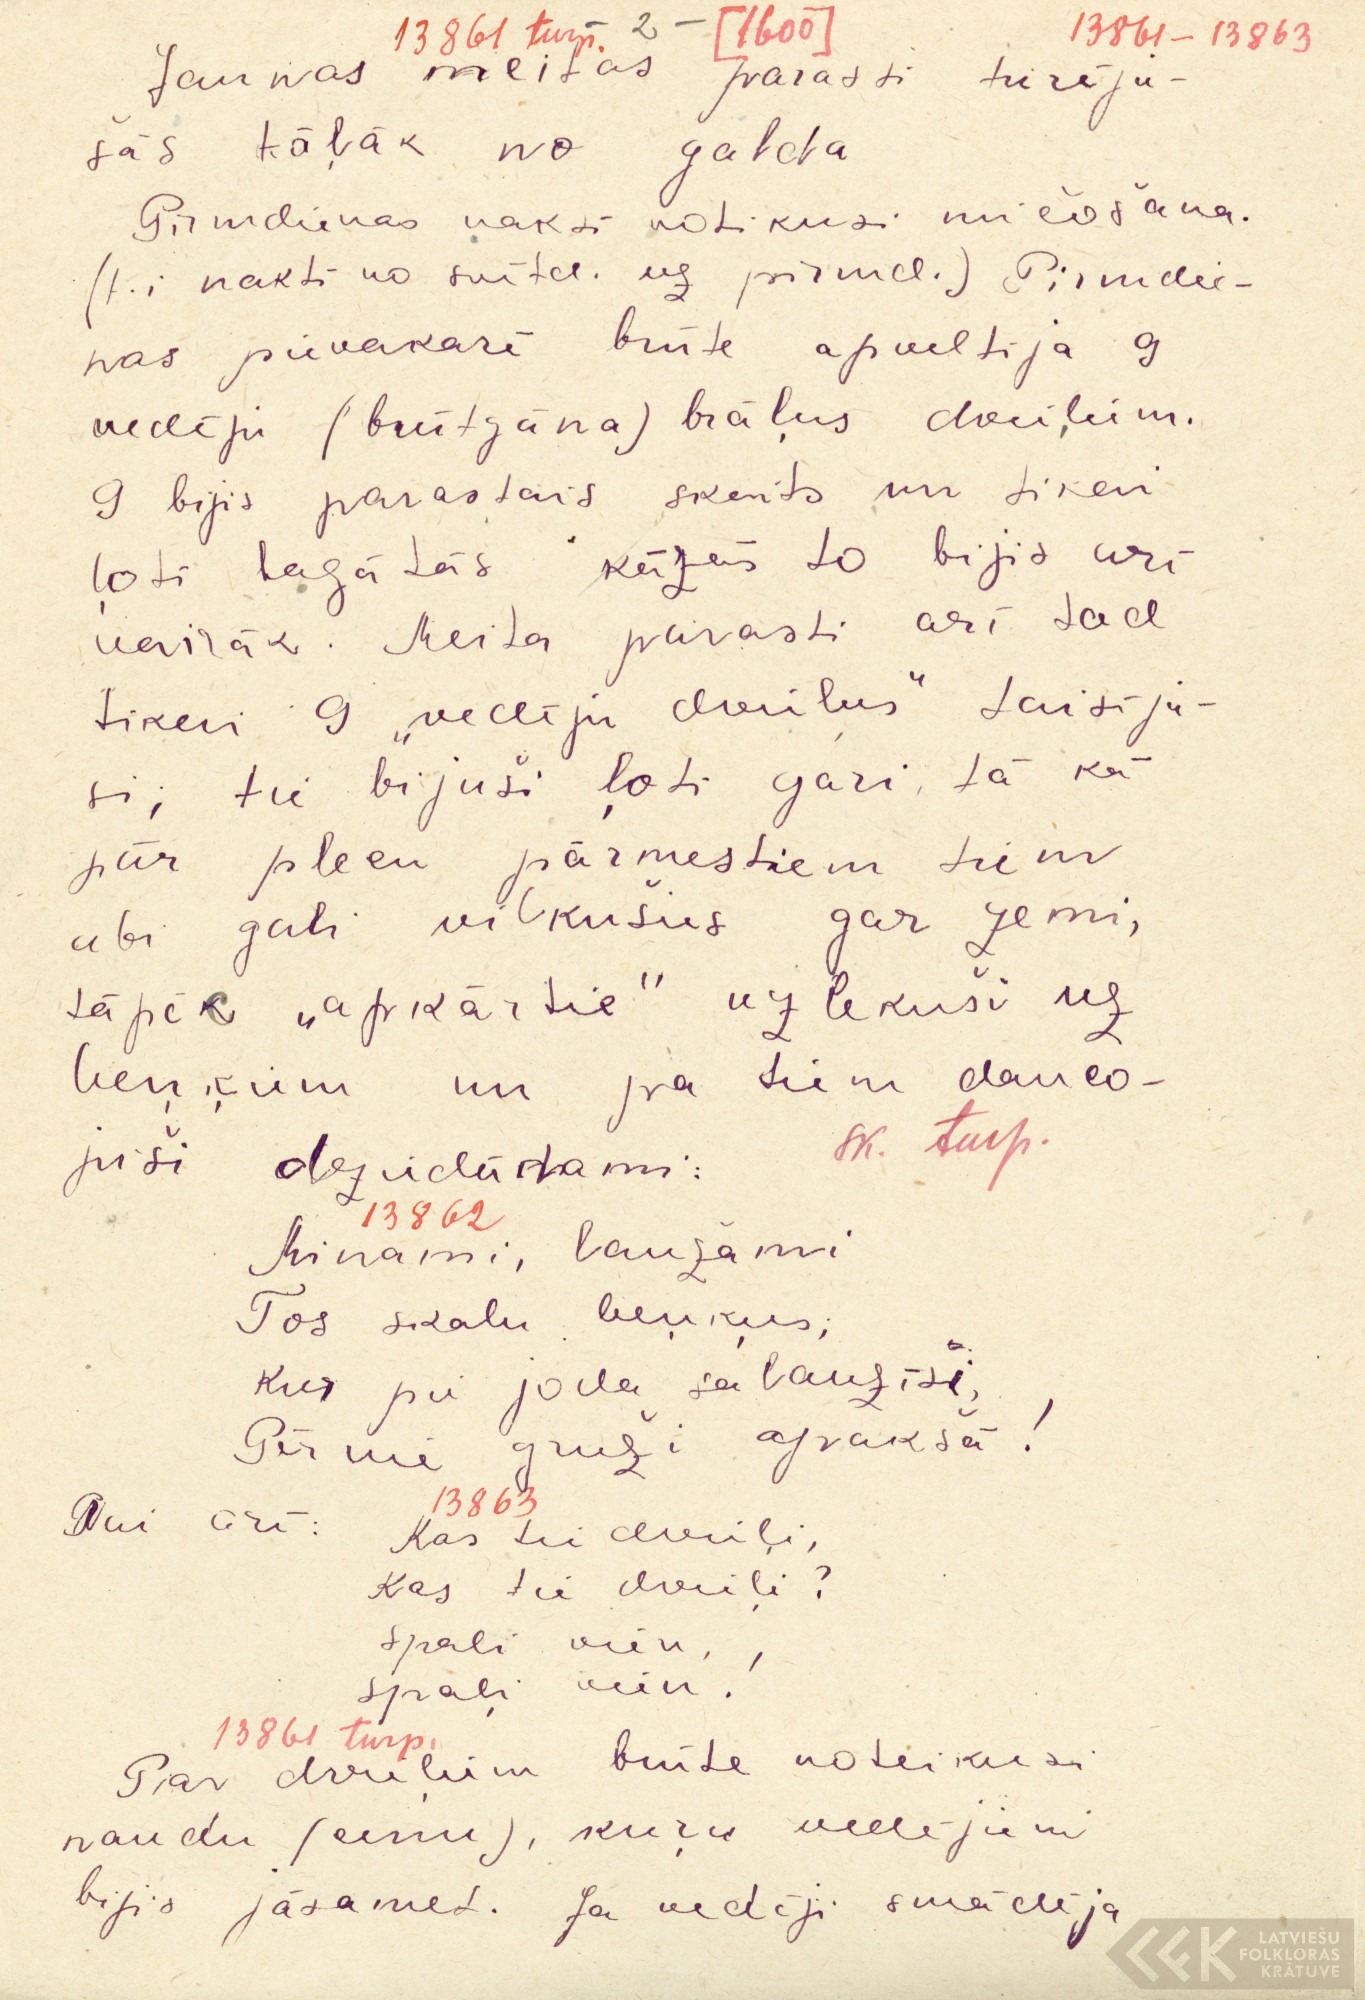 13861 turp. 2 – [1600] 13861 – 13863
Jaunas meitas parasti turēju-
šās tāļāk no galda
Pirmdienas naktī notikusi mičošana.
(t.i naktī no svētd. uz pirmd.) Pirmdie-
nas pievakarē brūte apveltīja 9
vedēju (brūtgāna) brāļus dvieļiem.
9 bijis parastais skaits un tikai
ļoti bagātās kāzās to bijis arī
vairāk. Meita parasti arī tad
tikai 9 „vedēju dvieļus" taisīju-
si; tie bijuši ļoti gari, tā kā
pār plecu pārmestiem tiem
abi gali vilkušies gar zemi,
tāpēc „apkārtie" uzlēkuši uz
beņķiem un pa tiem danco-
juši dziedādami: sk. turp.
13862
Minami, laužami
Tos skalu beņķus;
Kur pie joda salauzīsi,
Pērnie gruži apakšā!
Vai arī: 13863
Kas tie dvieļi,
Kas tie dvieļi?
spaļi vien,
spaļi vien!
13861 turp.
Par dvieļiem brūte noteikusi
naudu (cenu), kuŗu vedējiem
bijis jāsamet. Ja vedēji smādēja
LATVIEŠU
FOLKLORAS
KRĀTUVE